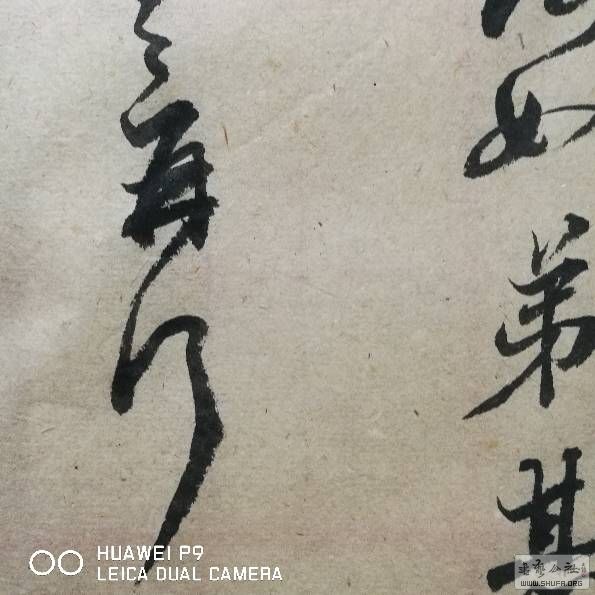 如弟其
再行
HUAWEI P9
LEICA DUAL CAMERA
WWW.SHUFA.ORG